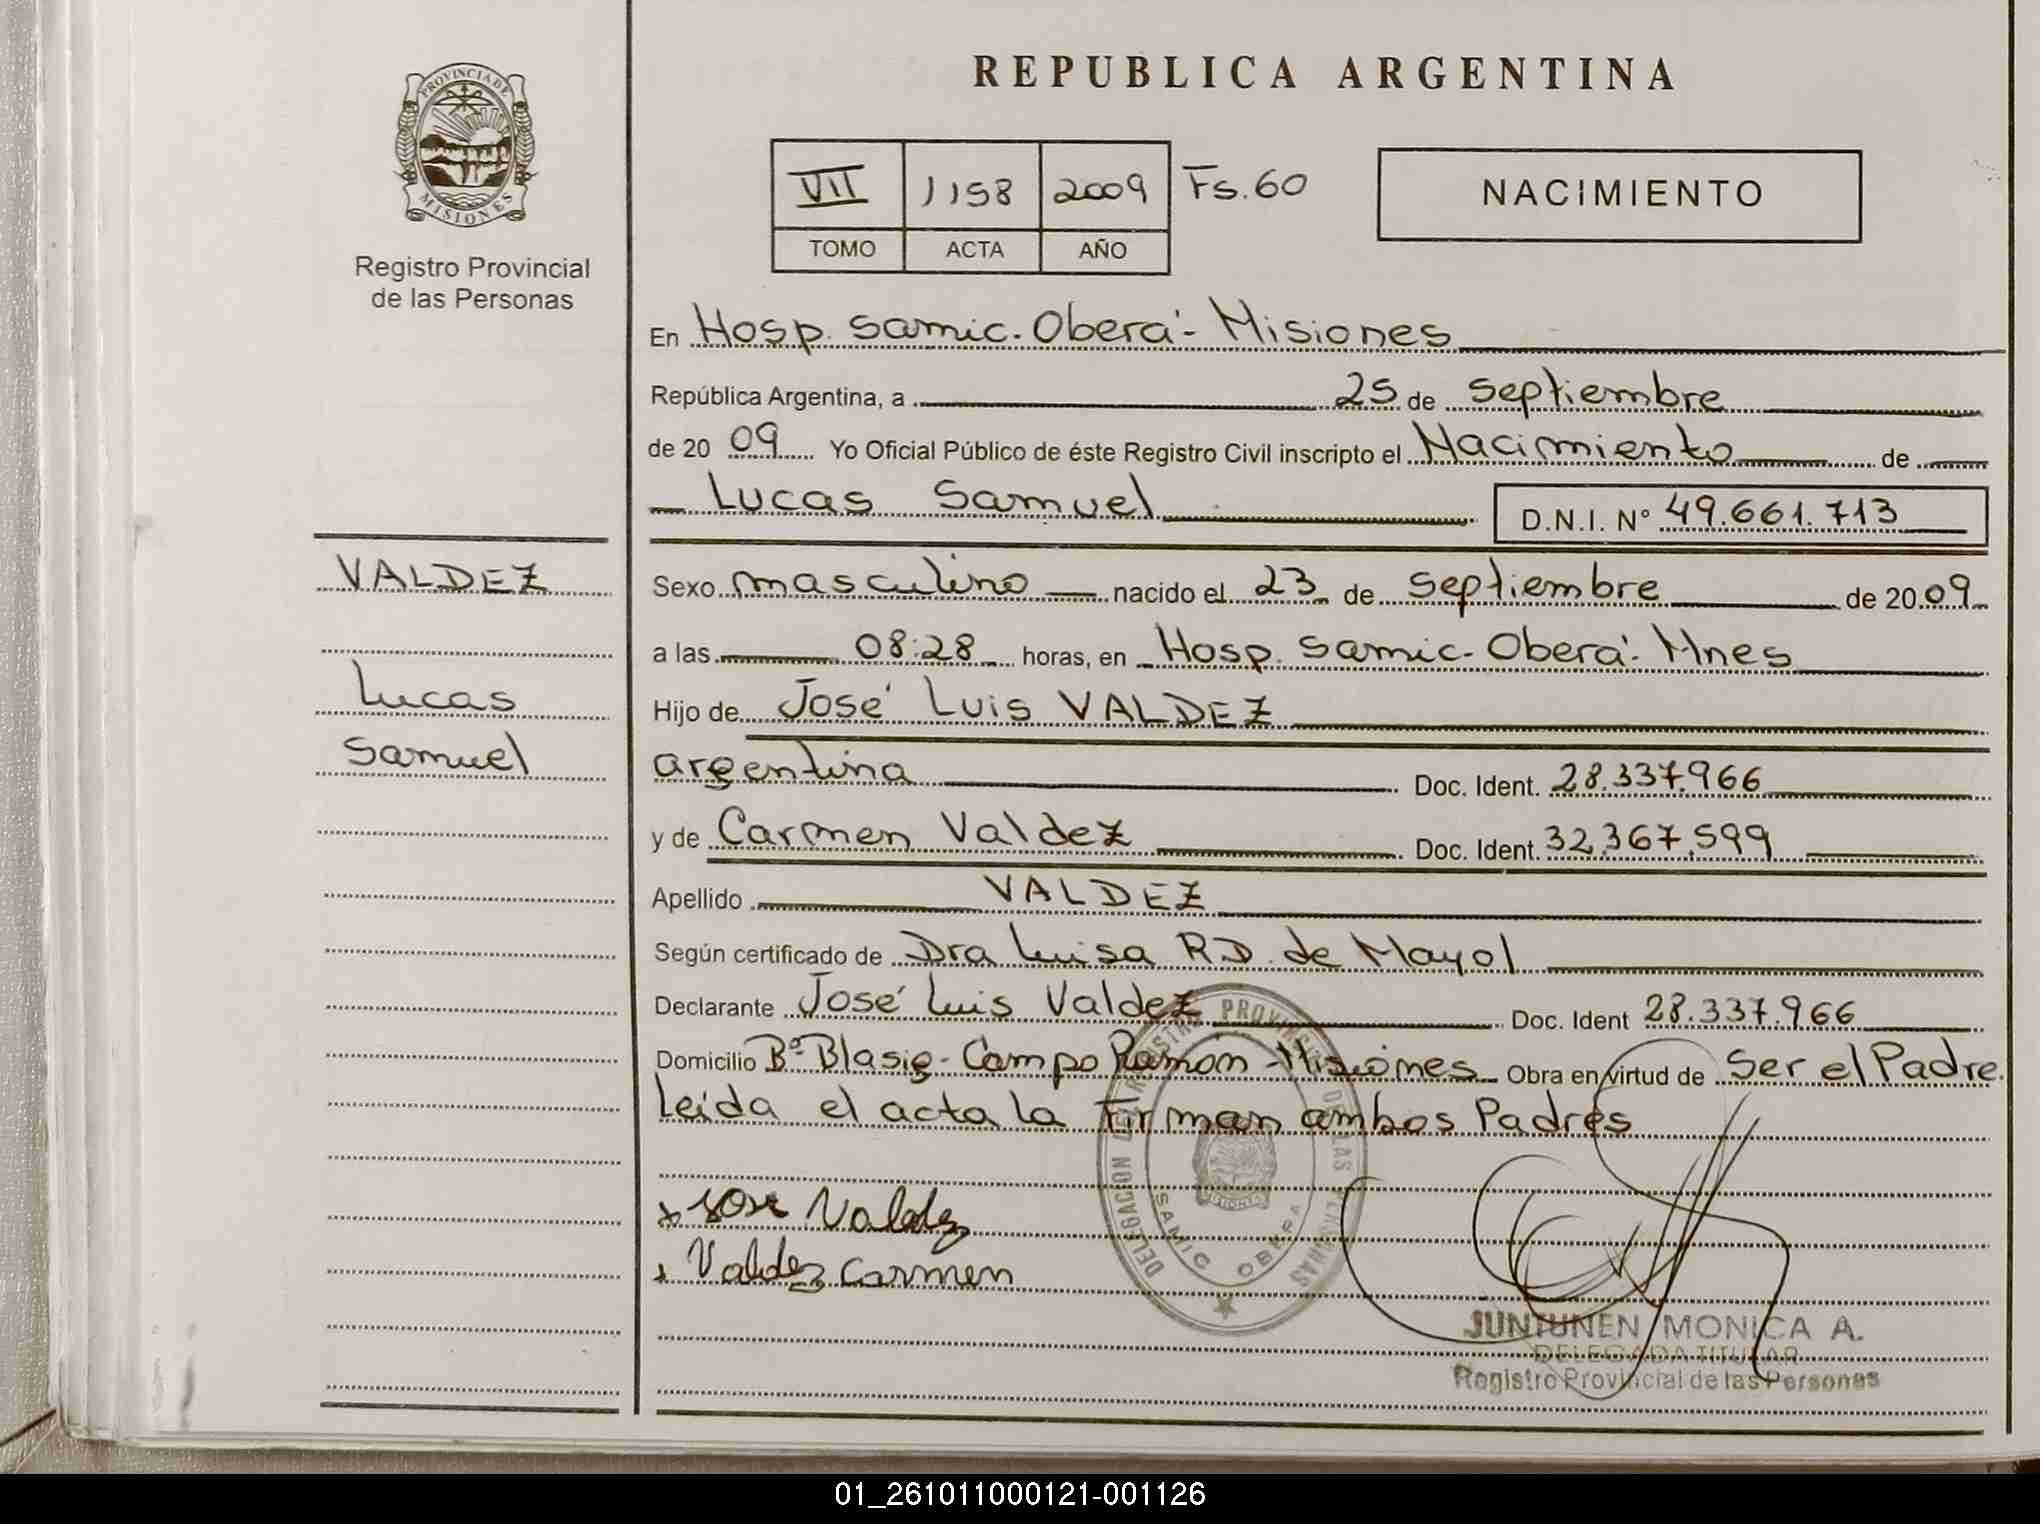 PROVINCIA DE
MISIONES
Registro Provincial
de las Personas
VALDEZ
Lucas
Samuel
REPUBLICA ARGENTINA
VII 1158 2009 Fs.60
TOMO ACTA AÑO
NACIMIENTO
En Hosp. Samic. Oberá - Misiones
República Argentina, a 25 de septiembre
de 20 09 Yo Oficial Público de éste Registro Civil inscripto el Nacimiento de
Lucas Samuel D.N.I. N° 49.661.713
Sexo masculino nacido el 23 de septiembre de 20 09
a las 08:28 horas, en Hosp. Samic. Oberá. Mnes
Hijo de José Luis VALDEZ
argentina Doc. Ident. 28.337.966
y de Carmen Valdez Doc. Ident. 32.367.599
Apellido VALDEZ
Según certificado de Dra Luisa R.D. de Mayol
Declarante José Luis Valdez Doc. Ident 28.337.966
Domicilio B° Blasig - Campo Ramón - Misiones Obra en virtud de Ser el Padre.
Leida el acta la Firman ambos Padres
x Jose Valdez
x Valdez Carmen
DELEGACION DEL REGISTRO PROVINCIAL DE LAS PERSONAS
SAMIC OBERA
MISIONES
JUNTUNEN MONICA A.
DELEGADA TITULAR
Registro Provincial de las Personas
01_261011000121-001126